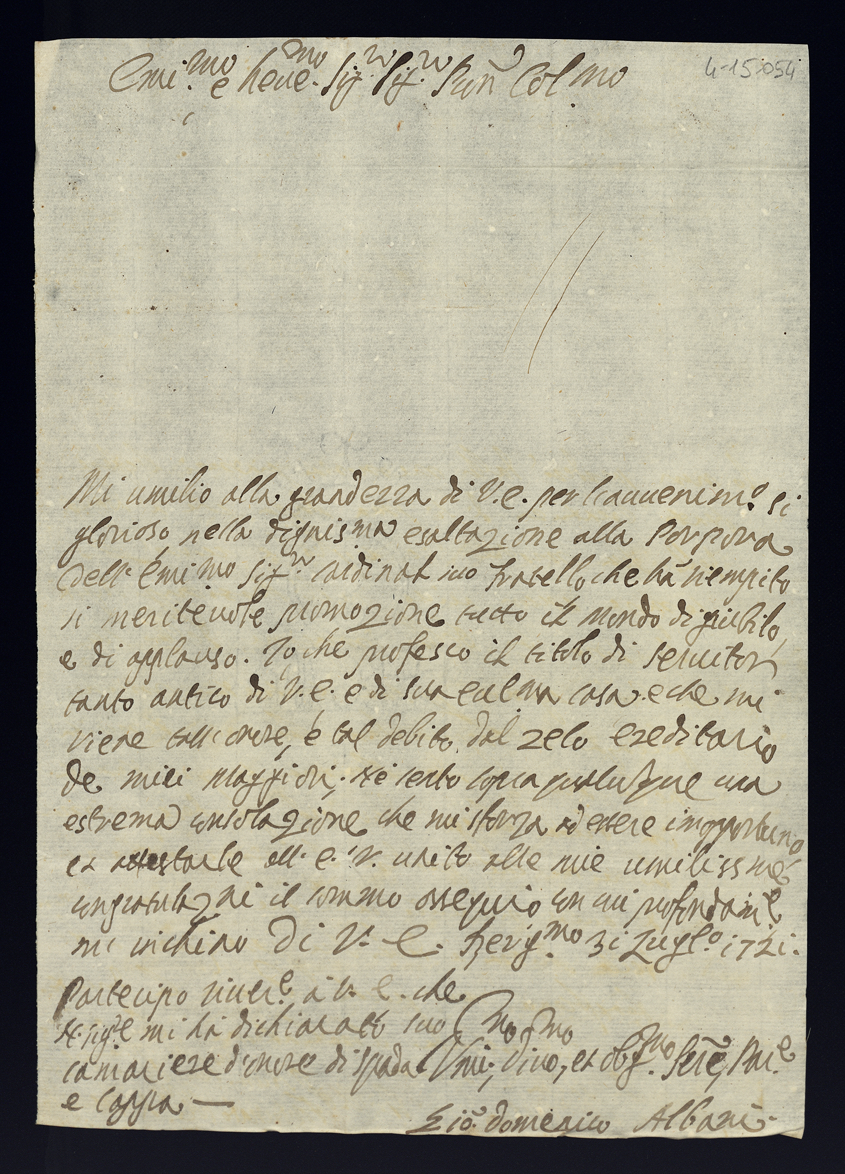 Emi.mo e Reue.mo Sig.r Sig.r Pron Colmo
4-15-054
Mi umilio alla grandezza di V.E. per l'auuenim.o si
glorioso nella dignissma esaltazione alla Porpora
dell' Emi.mo Sig.r Cardinal suo fratello, che ha riempito
si meriteuole promozione tutto il Mondo di giubilo,
e di applauso. Io che professo il titolo di seruitor
tanto antico di V.E. e di sua casa, e che mi
viene tall' onore, e tal debito, dal zelo ereditario
de miei Maggiori, ne sento sopra una
estrema consolazione, che mi sforza ad essere importuno
et attestarle all' E.V. unito alle mie umilissme
congratulazni il sommo ossequio con cui profondam.e
mi inchino Di V. E. 31 Lugl.o 1721.
Partecipo à V. E. che
N. Sig.e mi hà dichiarato suo
camariere d'onore di spada
e Cappa —
Umi.mo, Diuo.mo, et obg.mo Sere,
Gio. Domenico Albani